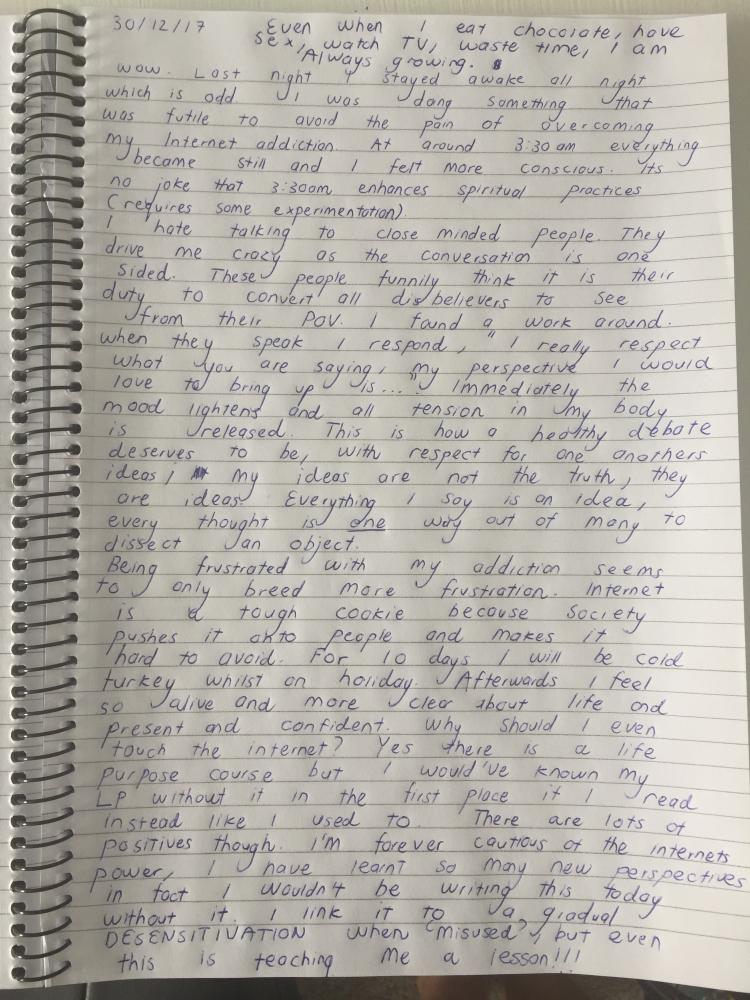 30/12/17 Even when I eat chocolate, have
sex, watch TV, waste time, I am
Always growing.
wow. Last night I stayed awake all night
which is odd. I was doing something that
was futile to avoid the pain of overcoming
my Internet addiction. At around 3:30 am everything
became still and I felt more conscious. Its
no joke that 3:30am enhances spiritual practices
(requires some experimentation).
I hate talking to close minded people. They
drive me crazy as the conversation is one
sided. These people funnily think it is their
duty to convert all disbelievers to see
from their POV. I found a work around.
when they speak I respond, "I really respect
what you are saying, my perspective I would
love to bring up is..." Immediately the
mood lightens and all tension in my body
is released. This is how a healthy debate
deserves to be, with respect for one anothers
ideas, my ideas are not the truth, they
are ideas. Everything I say is an idea,
every thought is one way out of many to
dissect an object.
Being frustrated with my addiction seems
to only breed more frustration. Internet
is a tough cookie because society
pushes it onto people and makes it
hard to avoid. For 10 days I will be cold
turkey whilst on holiday. Afterwards I feel
so alive and more clear about life and
present and confident. Why should I even
touch the internet? Yes there is a life
purpose course but I would've known my
LP without it in the first place if I read
instead like I used to. There are lots of
positives though. I'm forever cautious of the internets
power, I have learnt so many new perspectives
in fact I wouldn't be writing this today
without it. I link it to a gradual
DESENSITIVATION when "misused", but even
this is teaching me a lesson!!!